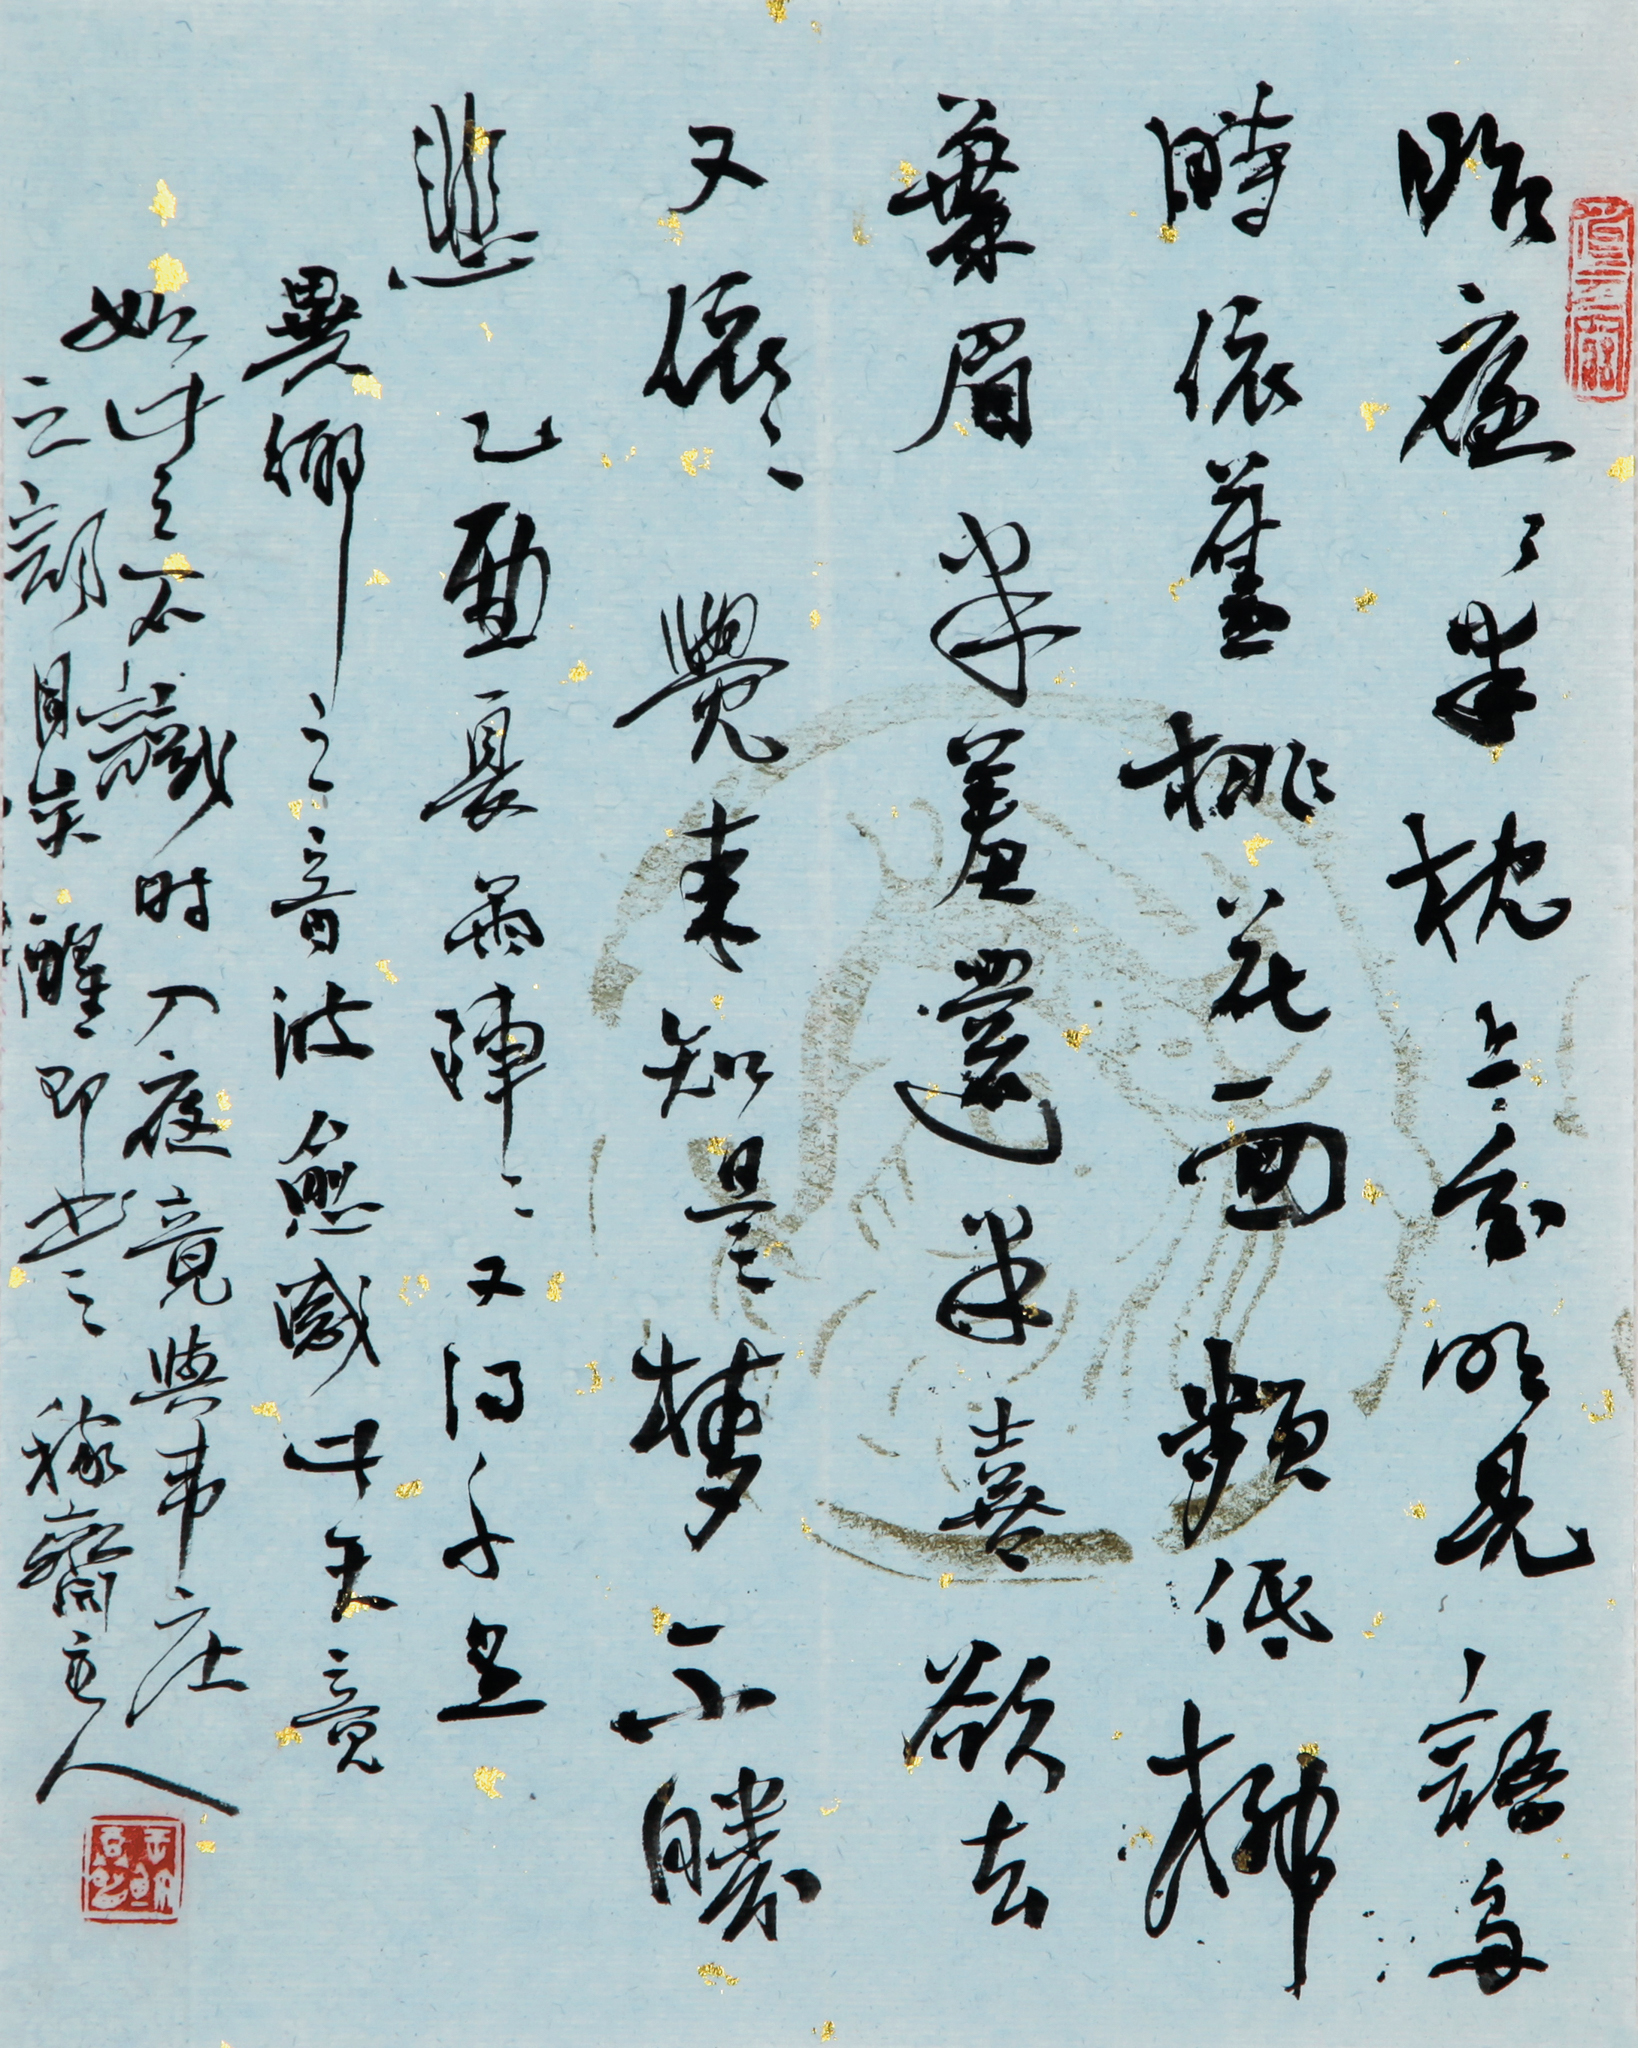 昨夜〻半枕上分明見語多
時依舊桃花面頻低柳
葉眉半羞還半喜欲去
又依〻覺來知是夢不勝
悲 乙酉夏陣〻又得千里
異鄉之音波愈感此天竟
如此之不識時入夜竟與韋庄
之韻同哭醒即書之 稼齋主人